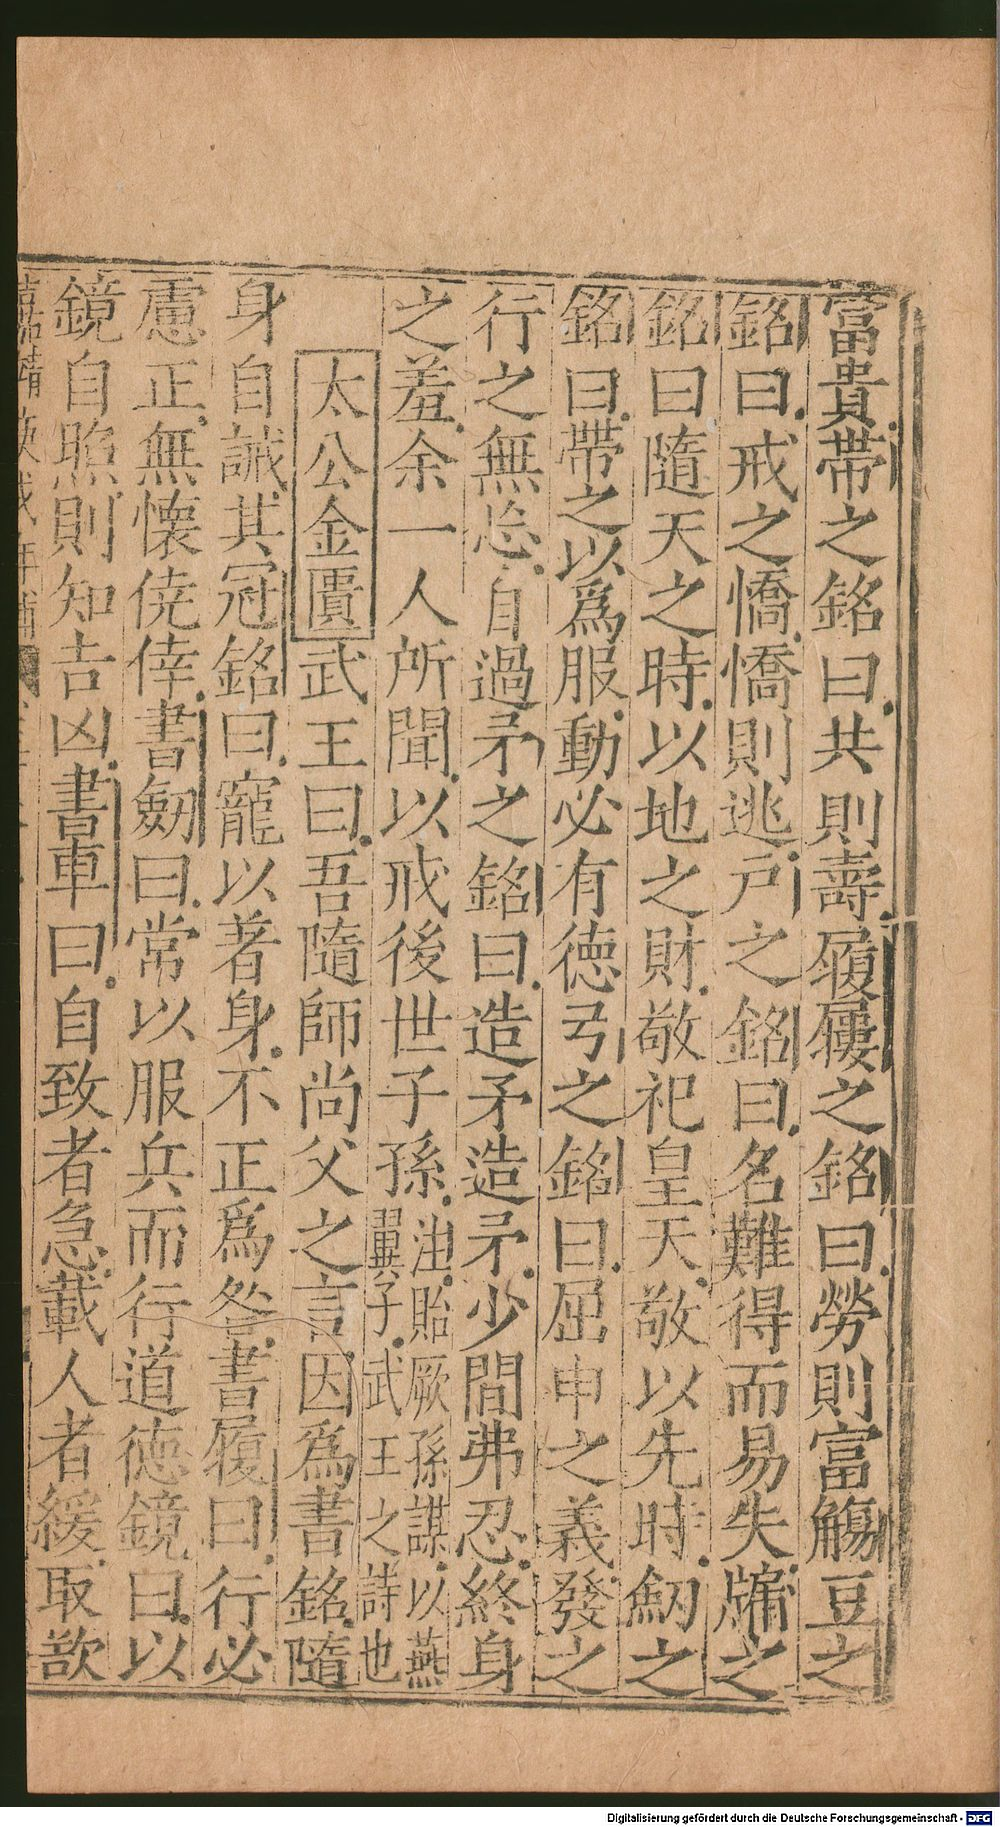 富貴帶之銘曰共則壽履屨之銘曰勞則富觴豆之
銘曰戒之憍憍則逃户之銘曰名難得而易失牖之
銘曰隨天之時以地之財敬祀皇天敬以先時劒之
銘曰帶之以爲服動必有德弓之銘曰屈申之義發之
行之無忘自過矛之銘曰造矛造矛少間弗忍終身
之羞余一人所聞以戒後世子孫注貽厥孫謀以燕翼子武王之詩也
太公金匱武王曰吾隨師尚父之言因爲書銘隨
身自誡其冠銘曰寵以著身不正爲咎書履曰行必
慮正無懷僥倖書劒曰常以服兵而行道德鏡曰以
鏡自照則知吉凶書車曰自致者急載人者緩取欲
嘉靖
Digitalisierung gefördert durch die Deutsche Forschungsgemeinschaft - DFG